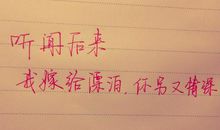 听闻后来
我嫁给漂泊，你另又情深